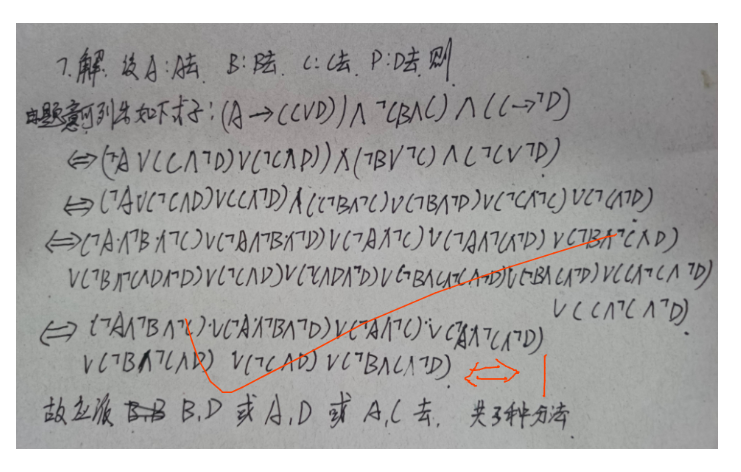 7.解. 设A:A去. B:B去. C:C去. P:D去.则
由题意可列出如下式子:(A→(C∨D))∧¬(B∧C)∧(C→¬D)
⇔(¬A∨(C∧¬D)∨(¬C∧D))∧(¬B∨¬C)∧(¬C∨¬D)
⇔(¬A∨(¬C∧D)∨(C∧¬D)∧((¬B∧¬C)∨(¬B∧¬D)∨(¬C∧¬C)∨(¬C∧¬D)
⇔(¬A∧¬B∧¬C)∨(¬A∧¬B∧¬D)∨(¬A∧¬C)∨(¬A∧¬C∧¬D)∨(¬B∧¬C∧D)
∨(¬B∧¬C∧D∧¬D)∨(¬C∧D)∨(¬C∧D∧¬D)∨(¬B∧C∧¬C∧¬D)∨(¬B∧C∧¬D)∨(C∧¬C∧¬D)
∨(C∧¬C∧¬D)
⇔(¬A∧¬B∧¬C)∨(¬A∧¬B∧¬D)∨(¬A∧¬C)∨(¬A∧¬C∧¬D)
∨(¬B∧¬C∧D) ∨(¬C∧D)∨(¬B∧C∧¬D) ⇔ 1
故应派 B,D 或 A,D 或 A,C 去. 共3种方法